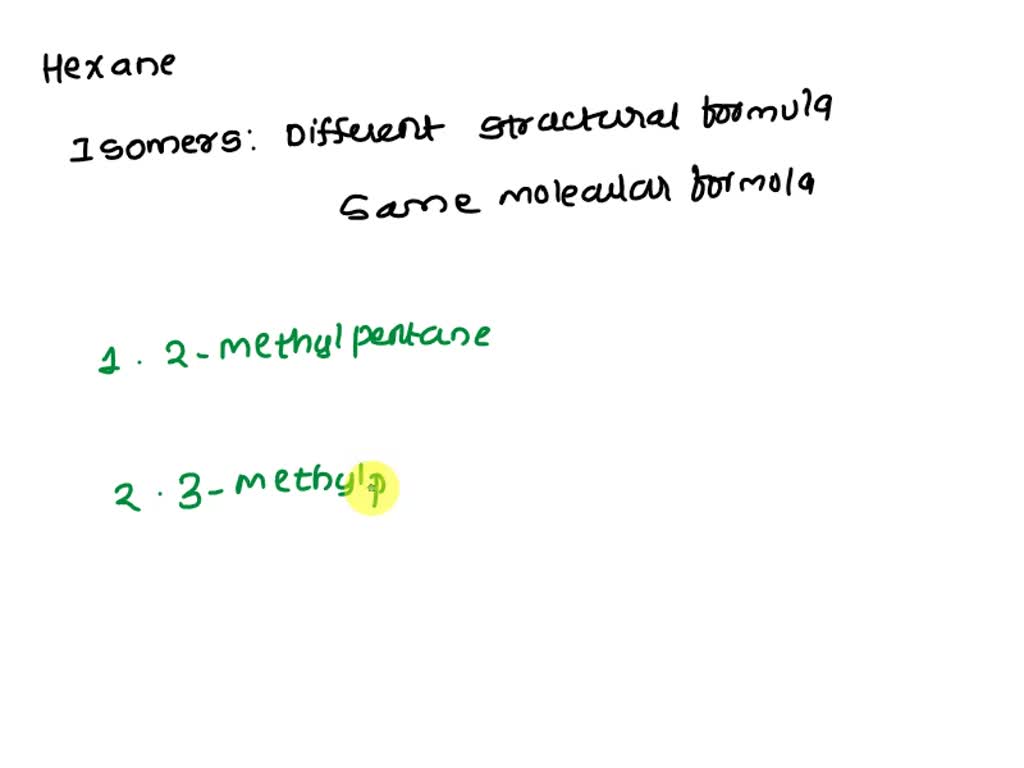 Hexane
Isomers: Different structural formula
Same molecular formola
1. 2-methylpentane
2. 3-methylp